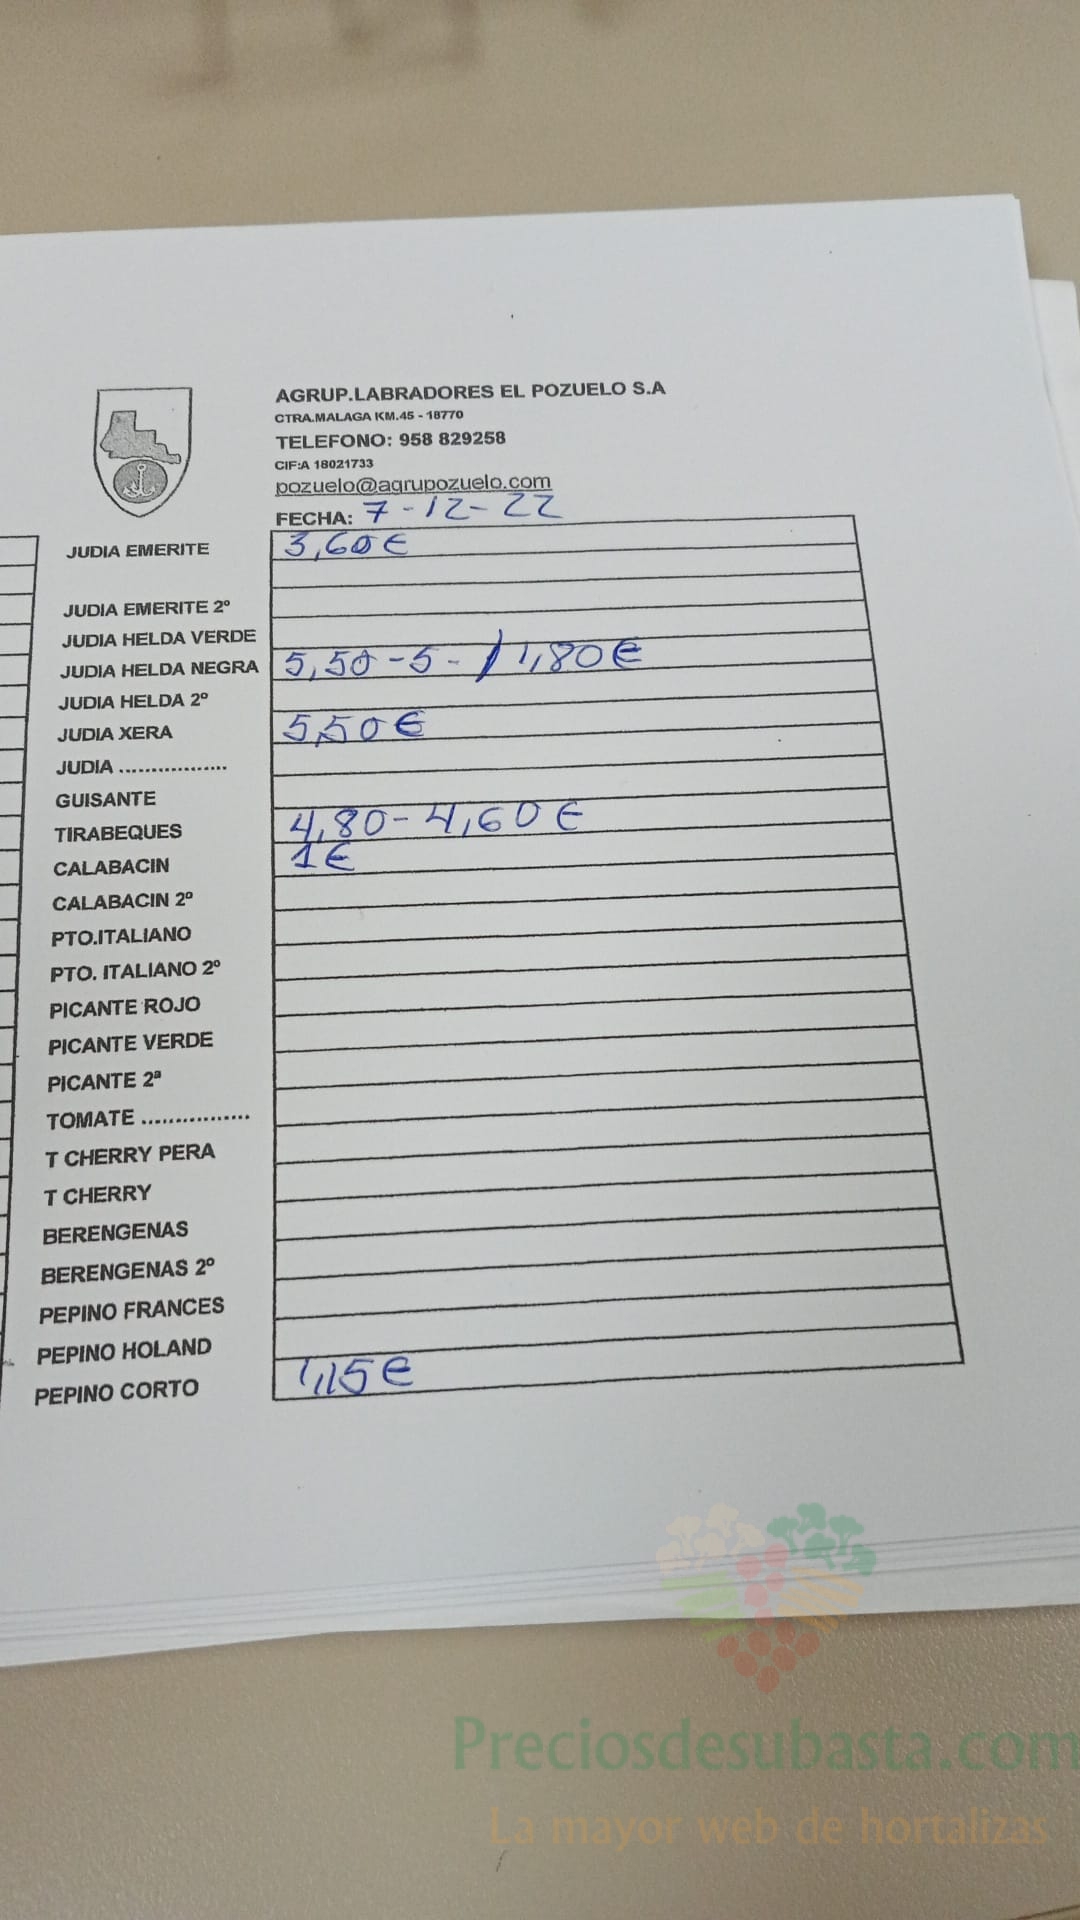 AGRUP.LABRADORES EL POZUELO S.A
CTRA.MALAGA KM.45 - 18770
TELEFONO: 958 829258
CIF:A 18021733
pozuelo@agrupozuelo.com
FECHA: 7-12-22
JUDIA EMERITE 3,60€
JUDIA EMERITE 2º
JUDIA HELDA VERDE
JUDIA HELDA NEGRA 5,50-5-/1,80€
JUDIA HELDA 2º
JUDIA XERA 5,50€
JUDIA .................
GUISANTE
TIRABEQUES 4,80-4,60€
CALABACIN 1€
CALABACIN 2º
PTO.ITALIANO
PTO. ITALIANO 2º
PICANTE ROJO
PICANTE VERDE
PICANTE 2ª
TOMATE .................
T CHERRY PERA
T CHERRY
BERENGENAS
BERENGENAS 2º
PEPINO FRANCES
PEPINO HOLAND
PEPINO CORTO 1,15€
Preciosdesubasta.com
La mayor web de hortalizas